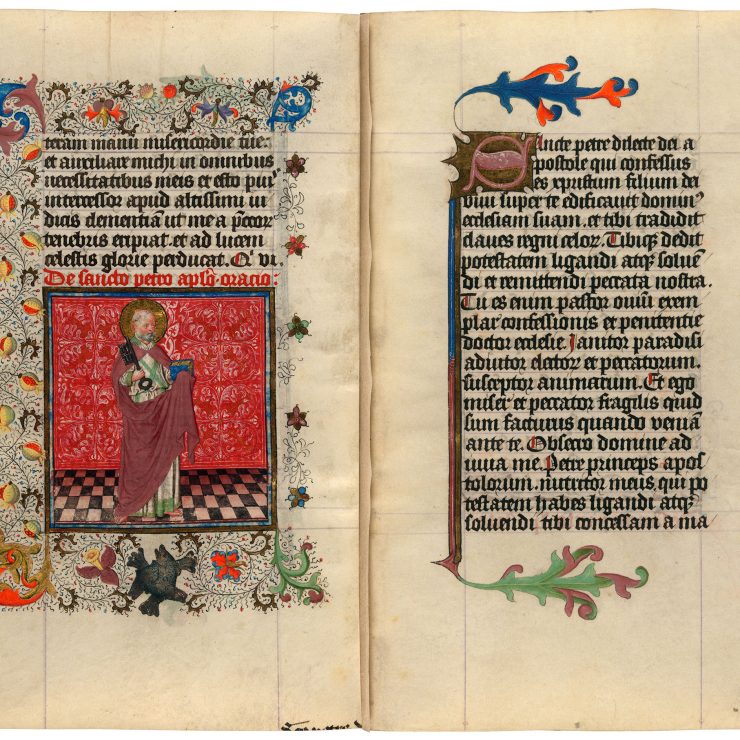 teram manu misericordie tue:
et auxiliare michi in omnibus
necessitatibus meis et esto pius
intercessor apud altissimi iu
dicis clementiā ut me a pctor
tenebris eripiat. et ad lucem
celestis glorie perducat. Q̄ vi.
De sancto petro apl̄o. oracio:
Sancte petre dilecte dei a
postole qui confessus
es xpristum filium dei
vivi super te edificavit domin⁹
ecclesiam suam. et tibi tradidit
claues regni celor. Tibiqꝫ dedit
potestatem ligandi atqꝫ soluen
di et remittendi peccata nostra.
Tu es enim pastor ouiū exem
plar confessionis et penitentie
doctor ecclesie. Janitor paradisi
adiutor elector et peccatorum.
susceptor animarum. Et ego
miser et peccator fragilis quid
sum facturus quando veniam
ante te. Obsecro domine ad
iuua me. Petre princeps apos
tolorum. nutritor meus. qui po
testatem habes ligandi atqꝫ
soluendi tibi concessam a ma